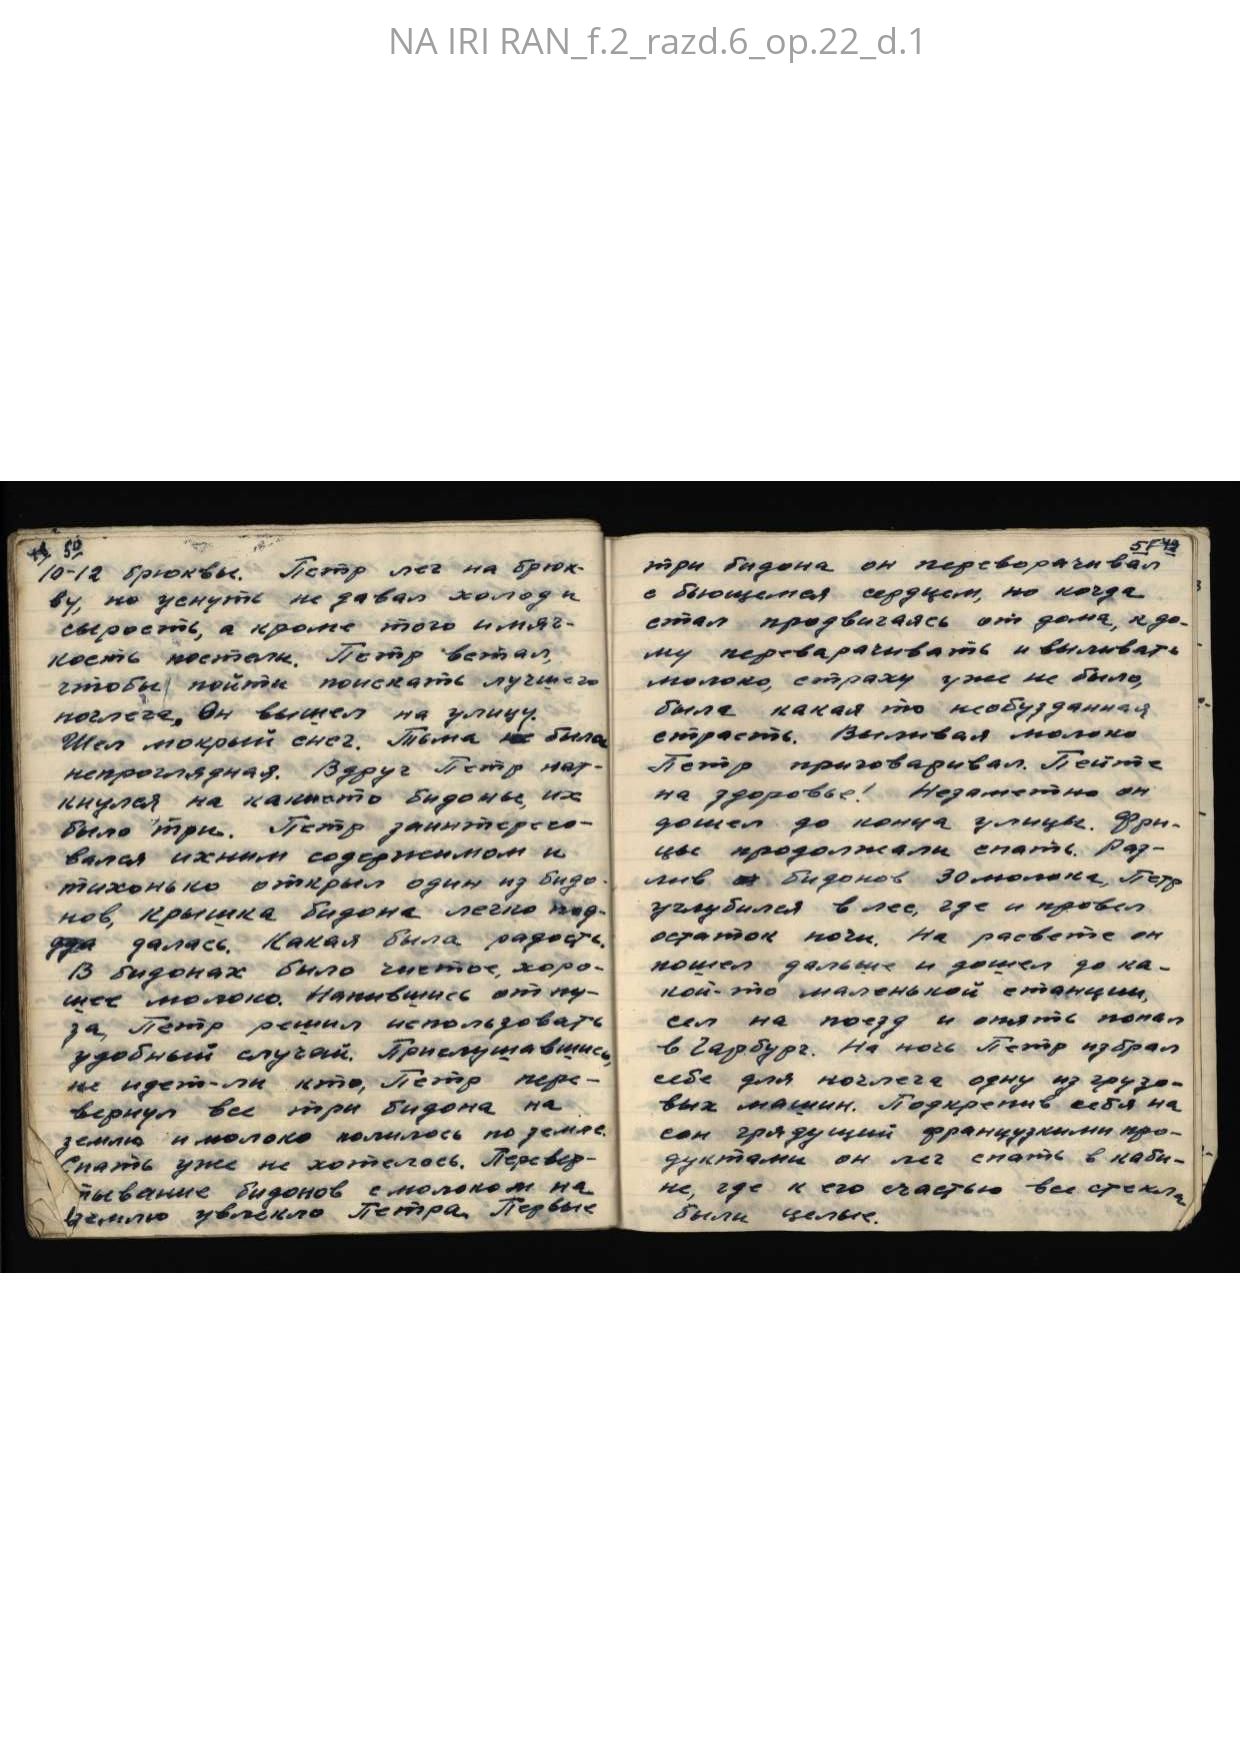 NA IRI RAN_f.2_razd.6_op.22_d.1
50
10-12 брюквы. Петр лег на брюк-
ву, но уснуть не давал холод и
сырость, а кроме того и мяг-
кость постели. Петр встал,
чтобы пойти поискать лучшего
ночлега. Он вышел на улицу.
Шел мокрый снег. Тьма была
непроглядная. Вдруг Петр нат-
кнулся на какието бидоны, их
было три. Петр заинтересо-
вался ихним содержимом и
тихонько открыл один из бидо-
нов, крышка бидона легко под-
далась. Какая была радость.
В бидонах было чистое, хоро-
шее молоко. Напившись от пу-
за, Петр решил использовать
удобный случай. Прислушавшись,
не идет-ли кто, Петр пере-
вернул все три бидона на
землю и молоко полилось по земле.
Спать уже не хотелось. Перевер-
тывание бидонов с молоком на
землю увлекло Петра. Первые
51 49
три бидона он переворачивал
с бьющемся сердцем, но когда
стал продвигаясь от дома, к до-
му переварачивать и выливать
молоко, страху уже не было,
была какая то необузданная
страсть. Выливая молоко
Петр приговаривал. Пейте
на здоровье! Незаметно он
дошел до конца улицы. Фри-
цы продолжали спать. Раз-
лив бидонов 30 молока, Петр
углубился в лес, где и провел
остаток ночи. На расвете он
пошел дальше и дошел до ка-
кой-то маленькой станции,
сел на поезд и опять попал
в Гарбург. На ночь Петр избрал
себе для ночлега одну из грузо-
вых машин. Подкрепив себя на
сон грядущий французкими про-
дуктами он лег спать в каби-
не, где к его счастью все стекла
были целые.